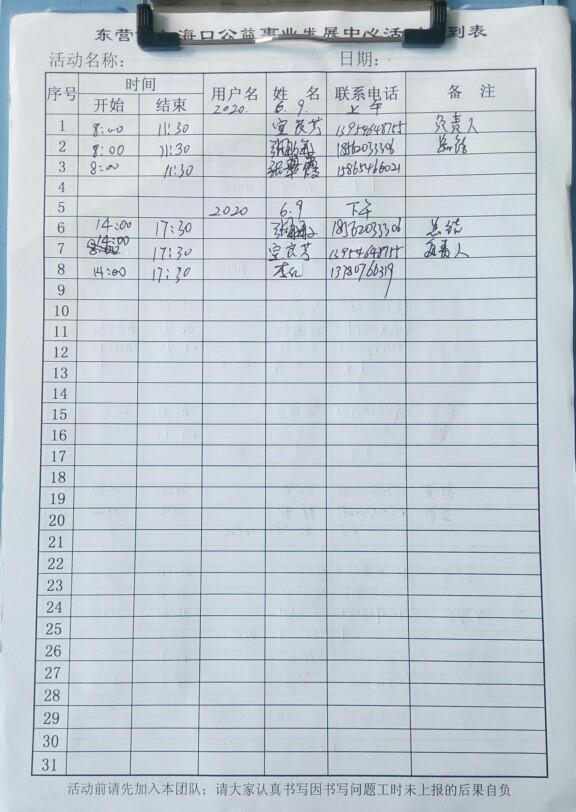 东营 海口公益事业发展中心活 到表
活动名称: 日期:
序号 时间 用户名 姓 名 联系电话 备 注
开始 结束
2020. 6.9. 上午
1 8:00 11:30 宝良芳 13954648755 负责人
2 8:00 11:30 18562033306 总结
3 8:00 11:30 15865466021
4
5 2020 6.9 下午
6 14:00 17:30 18562033306 总结
7 14:00 17:30 宝良芳 13954648755 负责人
8 14:00 17:30 李红 13780760319
9
10
11
12
13
14
15
16
17
18
19
20
21
22
23
24
25
26
27
28
29
30
31
活动前请先加入本团队;请大家认真书写因书写问题工时未上报的后果自负